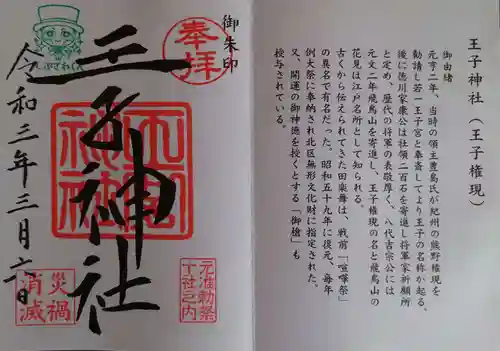 御朱印
奉拝
王子神社
王子神社
令和三年三月六日
災禍
消滅
元准勅祭
十社之内
王子神社（王子権現）
御由緒
元亨二年、当時の領主豊島氏が紀州の熊野権現を
勧請し若一王子宮と奉斎してより王子の名称が起る。
後に徳川家康公は社領二百石を寄進し将軍家祈願所
と定め、歴代の将軍の表敬厚く、八代吉宗公には
元文二年飛鳥山を寄進し、王子権現の名と飛鳥山の
花見は江戸名所として知られる。
古くから伝えられてきた田楽舞は、戦前「喧嘩祭」
の異名で有名だった。昭和五十九年に復元、毎年
例大祭に奉納され北区無形文化財に指定された。
又、開運の御神徳を授くとする「御槍」も
授与されている。